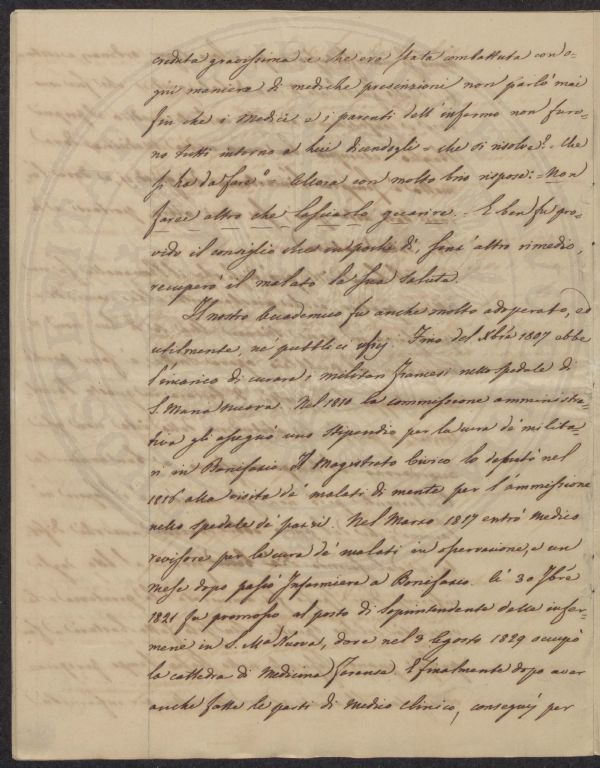 creduta gravissima e che era stata combattuta con o-
gni maniera di mediche prescrizioni non parlò mai
fin che i Medici e i parenti dell'infermo non furo-
no tutti intorno a lui dicendogli = che si risolve? = Che
si ha da fare? = Allora con molto brio rispose: = Non
farei altro che lasciarlo guarire. = E ben fu pro-
vido il consiglio che in pochi dì, senz'altro rimedio,
recuperò il malato la sua salute.
Il nostro Accademico fu anche molto adoperato, ed
utilmente, ne' pubblici ufizj. Fino del Xbre 1807 ebbe
l'incarico di curare i militari Francesi nello spedale di
S. Maria Nuova. Nel 1810 la commissione amministra-
tiva gli assegnò uno stipendio per la cura de' milita-
ri in Bonifazio. Il Magistrato Civico lo deputò nel
1816 alla visita de' malati di mente per l'ammissione
nello spedale de' pazzi. Nel Marzo 1817 entrò Medico
revisore per la cura de' malati in osservazione, e un
mese dopo passò Infermiere a Bonifazio. A' 30 7bre
1821 fu promosso al posto di Soprintendente delle infer-
merie in S. Ma. Nuova, dove nel 3 Agosto 1829 occupò
la cattedra di Medicina Forense. E finalmente dopo aver
anche fatte le parti di Medico clinico, conseguì per